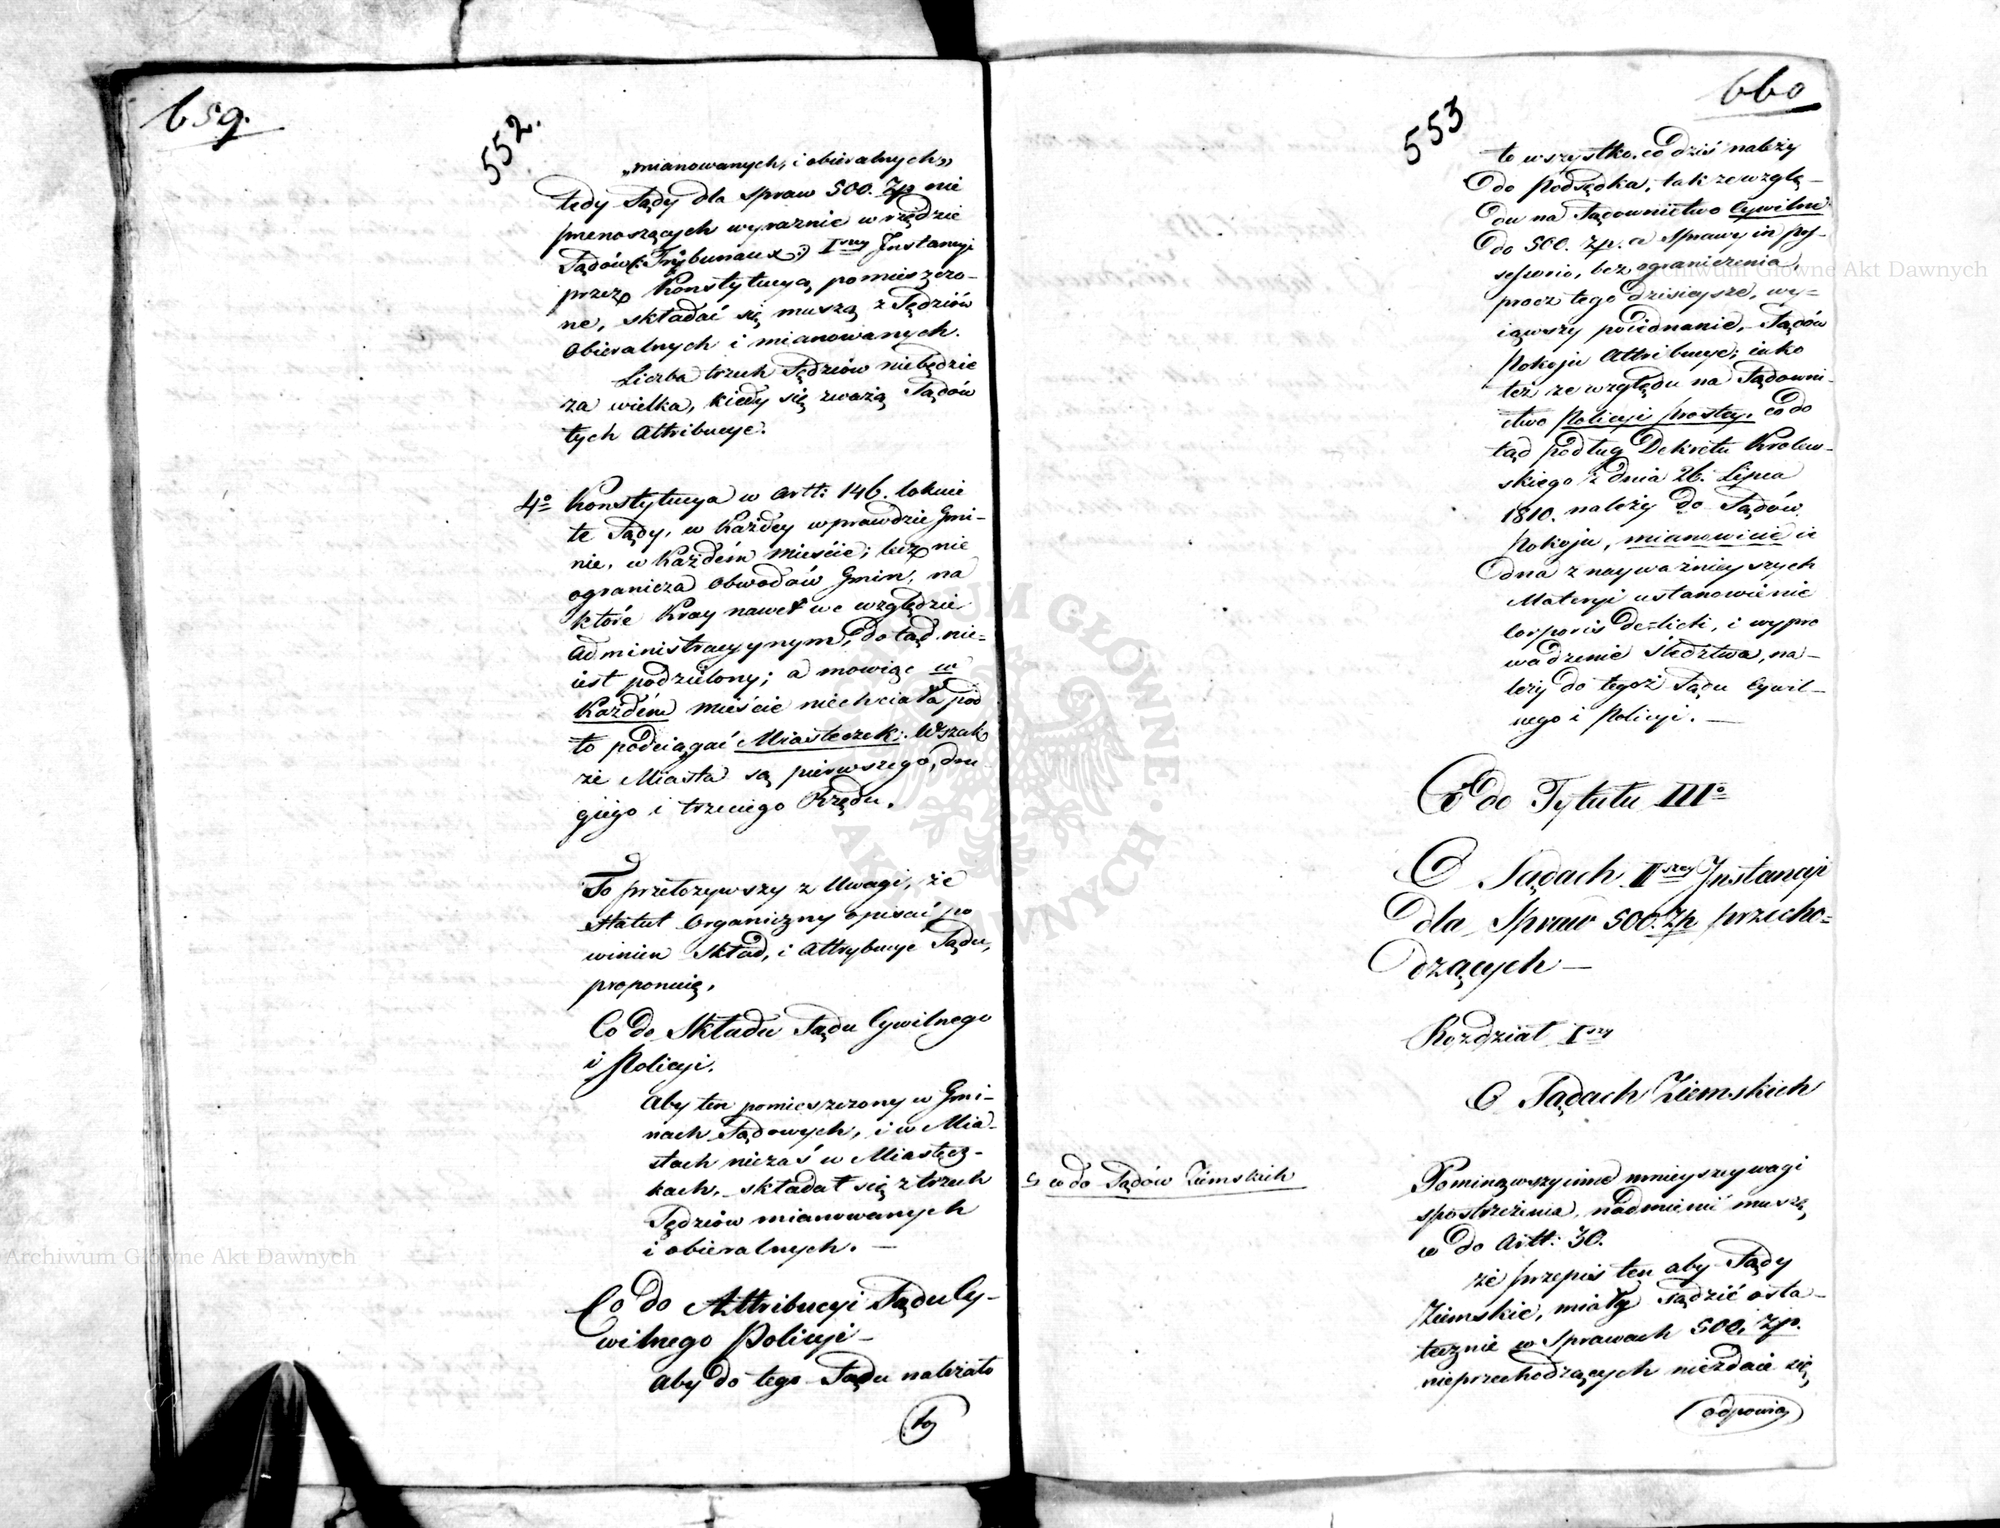 659.
552.
„mianowanych, i obieralnych„
tedy Sądy dla spraw 500. Zp nie
przenoszących wyraznie w rzędzie
Sądów (: Trybunaux :) Iszey Instancyi
przez Konstytucyą pomieszczo-
ne, składać się muszą z Sędziów
obieralnych i mianowanych.
Liczba trzech Sędziów niebędzie
za wielka, kiedy się zważą Sądów
tych Attribucye.
4o Konstytucya w Artt: 146. lokuie
te Sądy, w Każdey wprawdzie Gmi-
nie, w Każdém Mieście; lecz nie
ogranicza Obwodów Gmin, na
które Kray nawet we względzie
Administracyynym, do tąd nie-
iest podzielony; a mowiąc w
Każdém Mieście niechciała pod
to podciągać Miasteczek; Wszak
że Miasta są pierwszego, dru
giego i trzeciego Rzędu.
To przełożywszy z Uwagi, że
Statut Organiczny opisać po
winien Skład, i Attrybucye Sądu,
proponuię,
Co do Składu Sądu Cywilnego
i Policyi.
Aby ten pomieszczony w Gmi-
nach Sądowych, i w Mia-
stach niezaś w Miastecz-
kach, składał się z trzech
Sędziów mianowanych
i obieralnych. —
Co do Attribucyi Sądu Cy-
wilnego Policyi —
Aby do tego Sądu należało
to
660
553
to wszystko, co dziś należy
do Podsędka, tak ze wzglę-
du na Sądownictwo Cywilne
do 500. Zp. a Sprawy in pos-
sessorio, bez ograniczenia,
procz tego dzisieysze, wy-
iąwszy poiednanie, Sądów
Pokoju Attribucye; iako
też ze względu na Sądowni-
ctwo Policyi prostey, co do
tąd podług Dekretu Królew-
skiego z dnia 26. Lipca
1810. należy do Sądów
Pokoju, mianowicie ie
dna z nayważnieyszych
Materyi ustanowienie
Corporis delicti, i wypro
wadzenie śledztwa, na-
leży do tegoż Sądu Cywil-
nego i Policyi. —
Co do Tytułu IIIo
O Sądach IIszey Instancyi
dla Spraw 500. Zp przecho-
dzących —
Rozdział Iszy
O Sądach Ziemskich
5 co do Sądów Ziemskich
Pominąwszy inne mnieyszey wagi
spostrzeżenia, nadmienić muszę,
co do Artt: 30.
że przepis ten aby Sądy
Ziemskie, miały sądzić osta-
tecznie w Sprawach 500. Zp.
nieprzechodzących niezdaie się,
odpowia
Archiwum Główne Akt Dawnych
Archiwum Główne Akt Dawnych